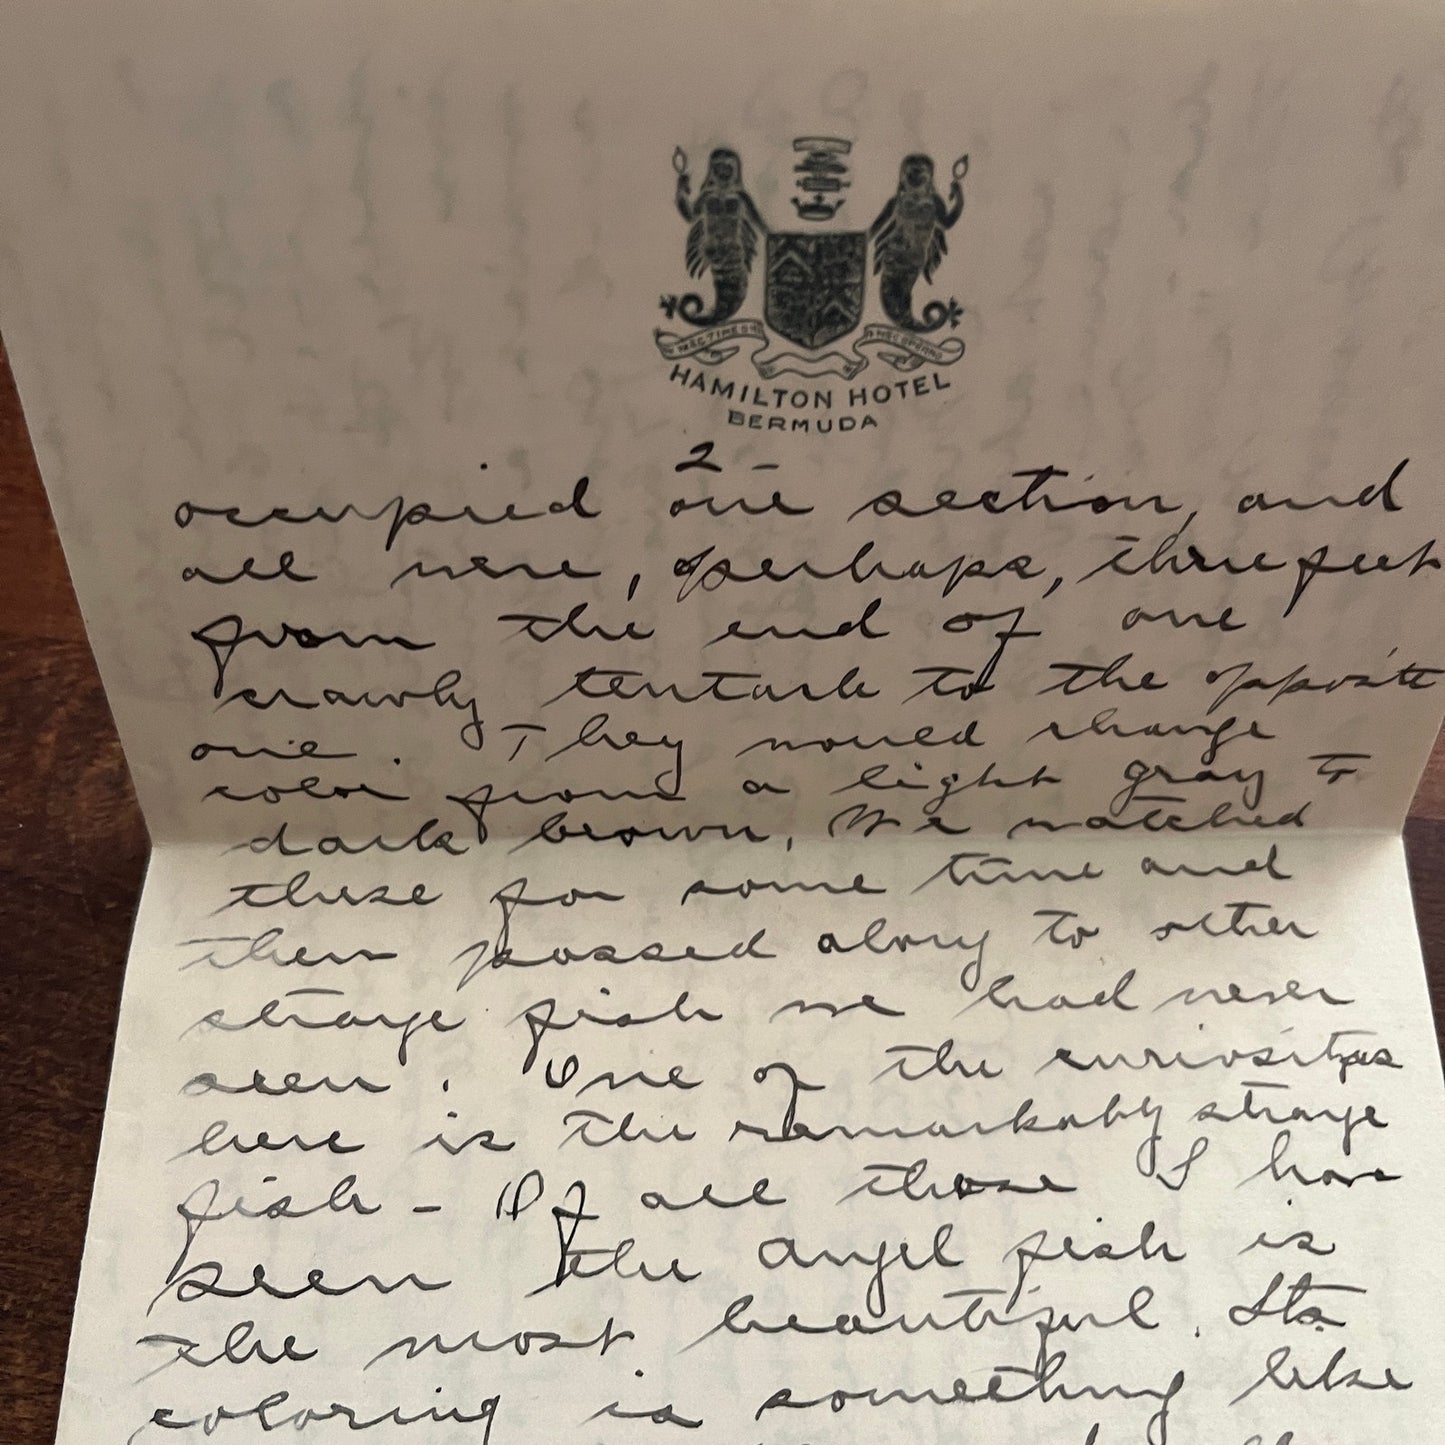 NEC TIMEO
NEC SPERNO
HAMILTON HOTEL
BERMUDA
2 -
occupied one section, and
all were, perhaps, three feet
from the end of one
crawly tentacle to the opposite
one. They would change
color from a light gray to
dark brown, We watched
these for some time and
then passed along to other
strange fish we had never
seen. One of the curiosities
here is the remarkably strange
fish - Of all those I have
seen the angel fish is
the most beautiful. Its
coloring is something like